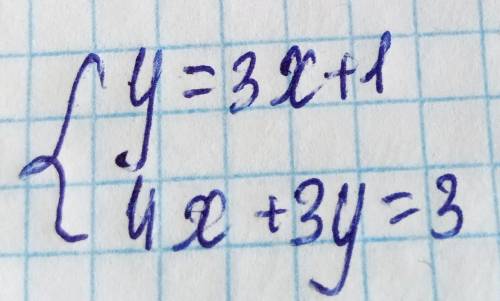 y = 3x + 1
4x + 3y = 3